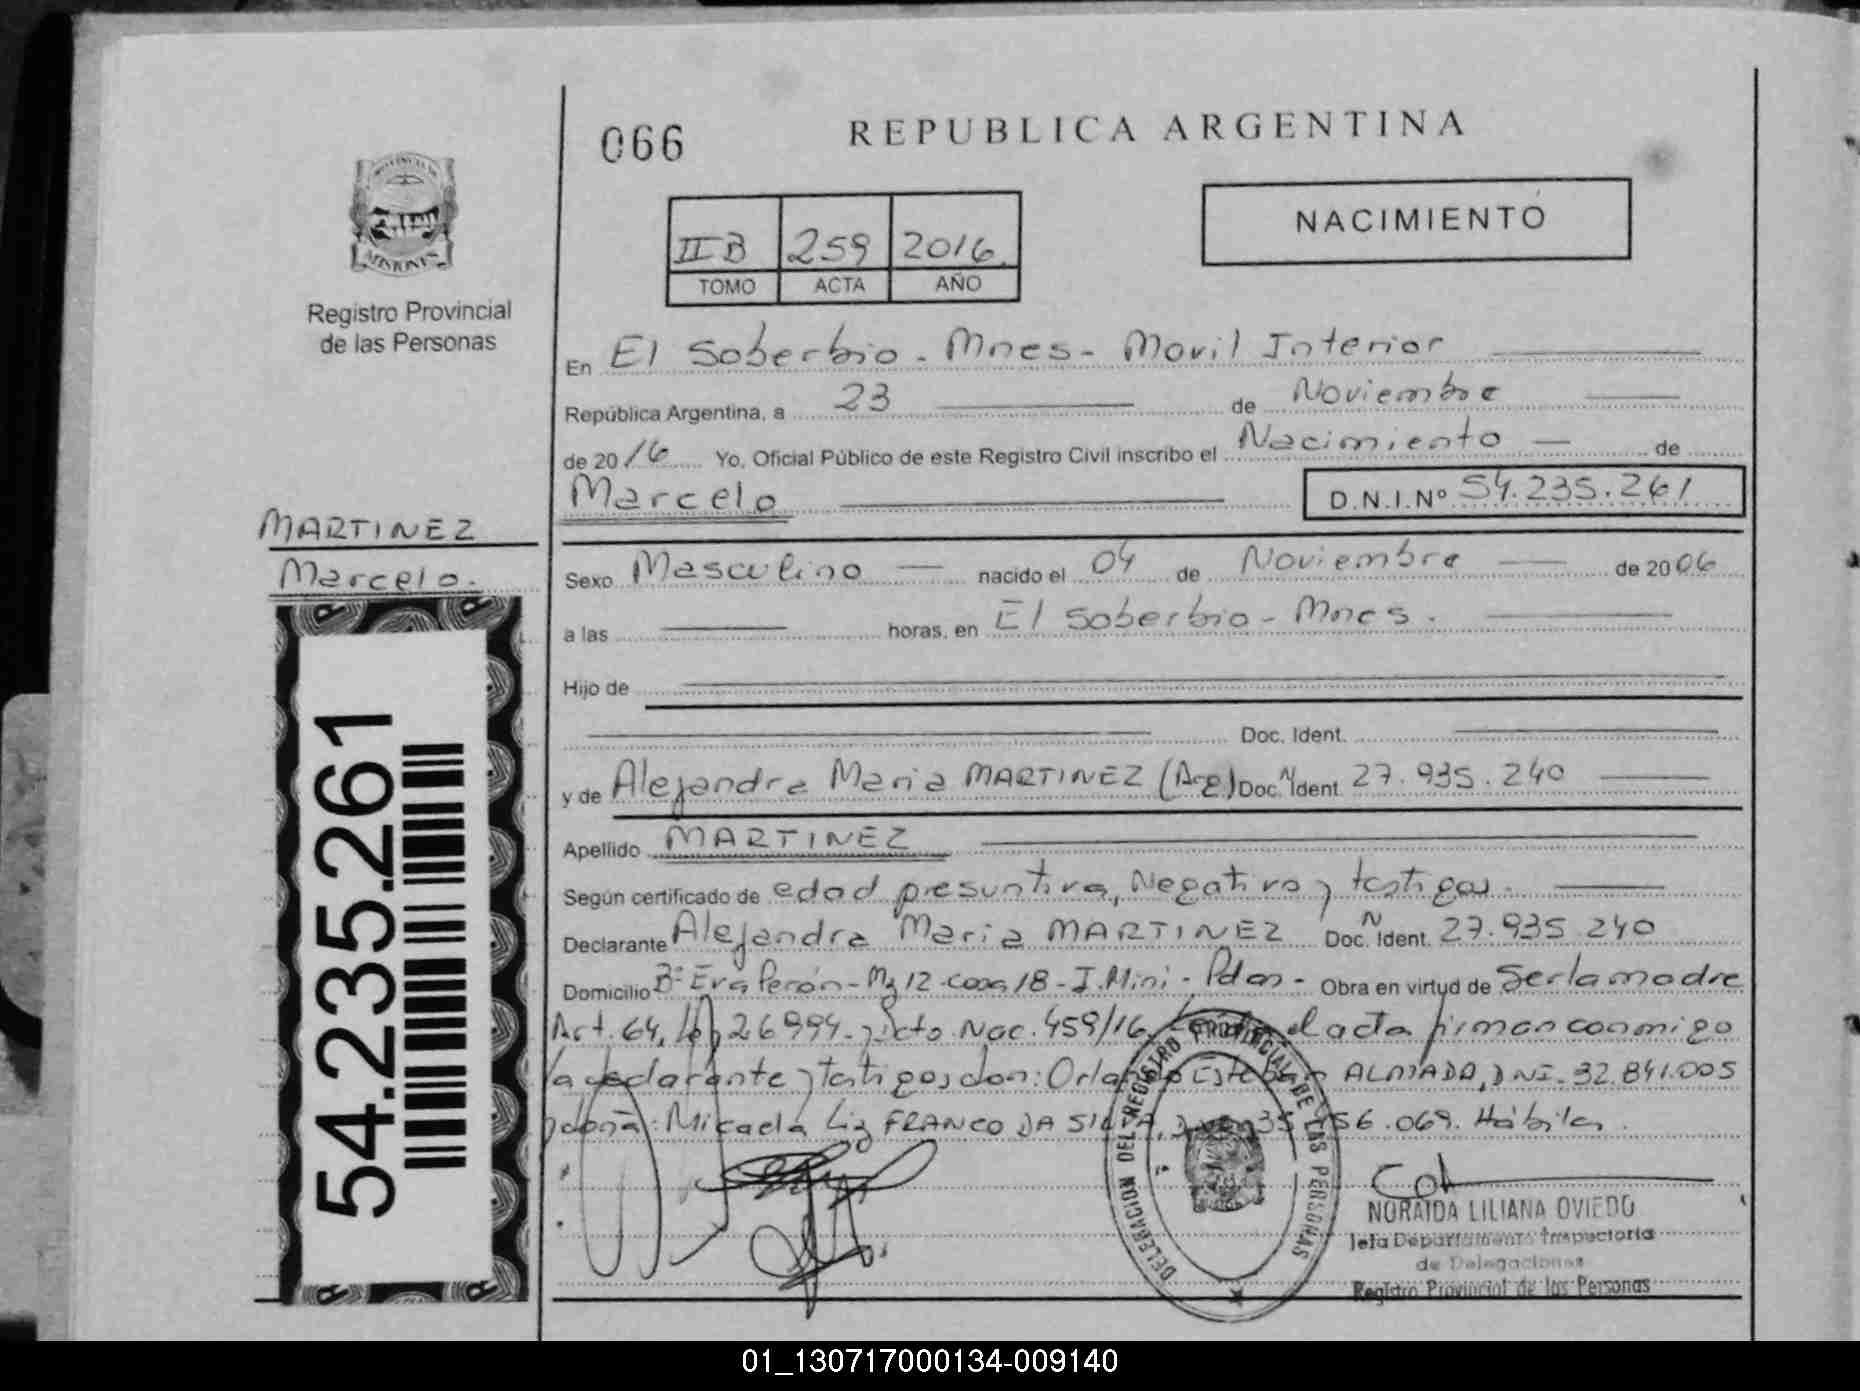 066
REPUBLICA ARGENTINA
NACIMIENTO
II B 259 2016
TOMO ACTA AÑO
MISIONES
Registro Provincial
de las Personas
En El Soberbio - Mnes - Movil Interior
República Argentina, a 23 de Noviembre
de 2016 Yo, Oficial Público de este Registro Civil inscribo el Nacimiento de
Marcelo D.N.I.Nº 54.235.261
MARTINEZ
Marcelo.
54.235.261
Sexo Masculino nacido el 04 de Noviembre de 2006
a las horas, en El Soberbio - Mnes.
Hijo de
Doc. Ident.
y de Alejandra Maria MARTINEZ (Arg) Doc. N Ident. 27.935.240
Apellido MARTINEZ
Según certificado de edad presuntiva, Negativo y testigos.
Declarante Alejandra Maria MARTINEZ Doc. N Ident. 27.935.240
Domicilio Bº Eva Perón - Mz 12 - casa 18 - I. Mini - Pdas - Obra en virtud de Ser la madre
Art. 64, Ley 26.994 - y Dcto. Nac. 459/16. el acta firman conmigo
la declarante y testigos don: Orlando Esteban ALMADA, DNI. 32.841.005
y doña: Micaela Liz FRANCO DA SILVA, 069. Hábiles.
DELEGACION DEL REGISTRO PROVINCIAL DE LAS PERSONAS
NORAIDA LILIANA OVIEDO
Jefa Departamento Inspectoria
de Delegaciones
Registro Provincial de las Personas
01_130717000134-009140